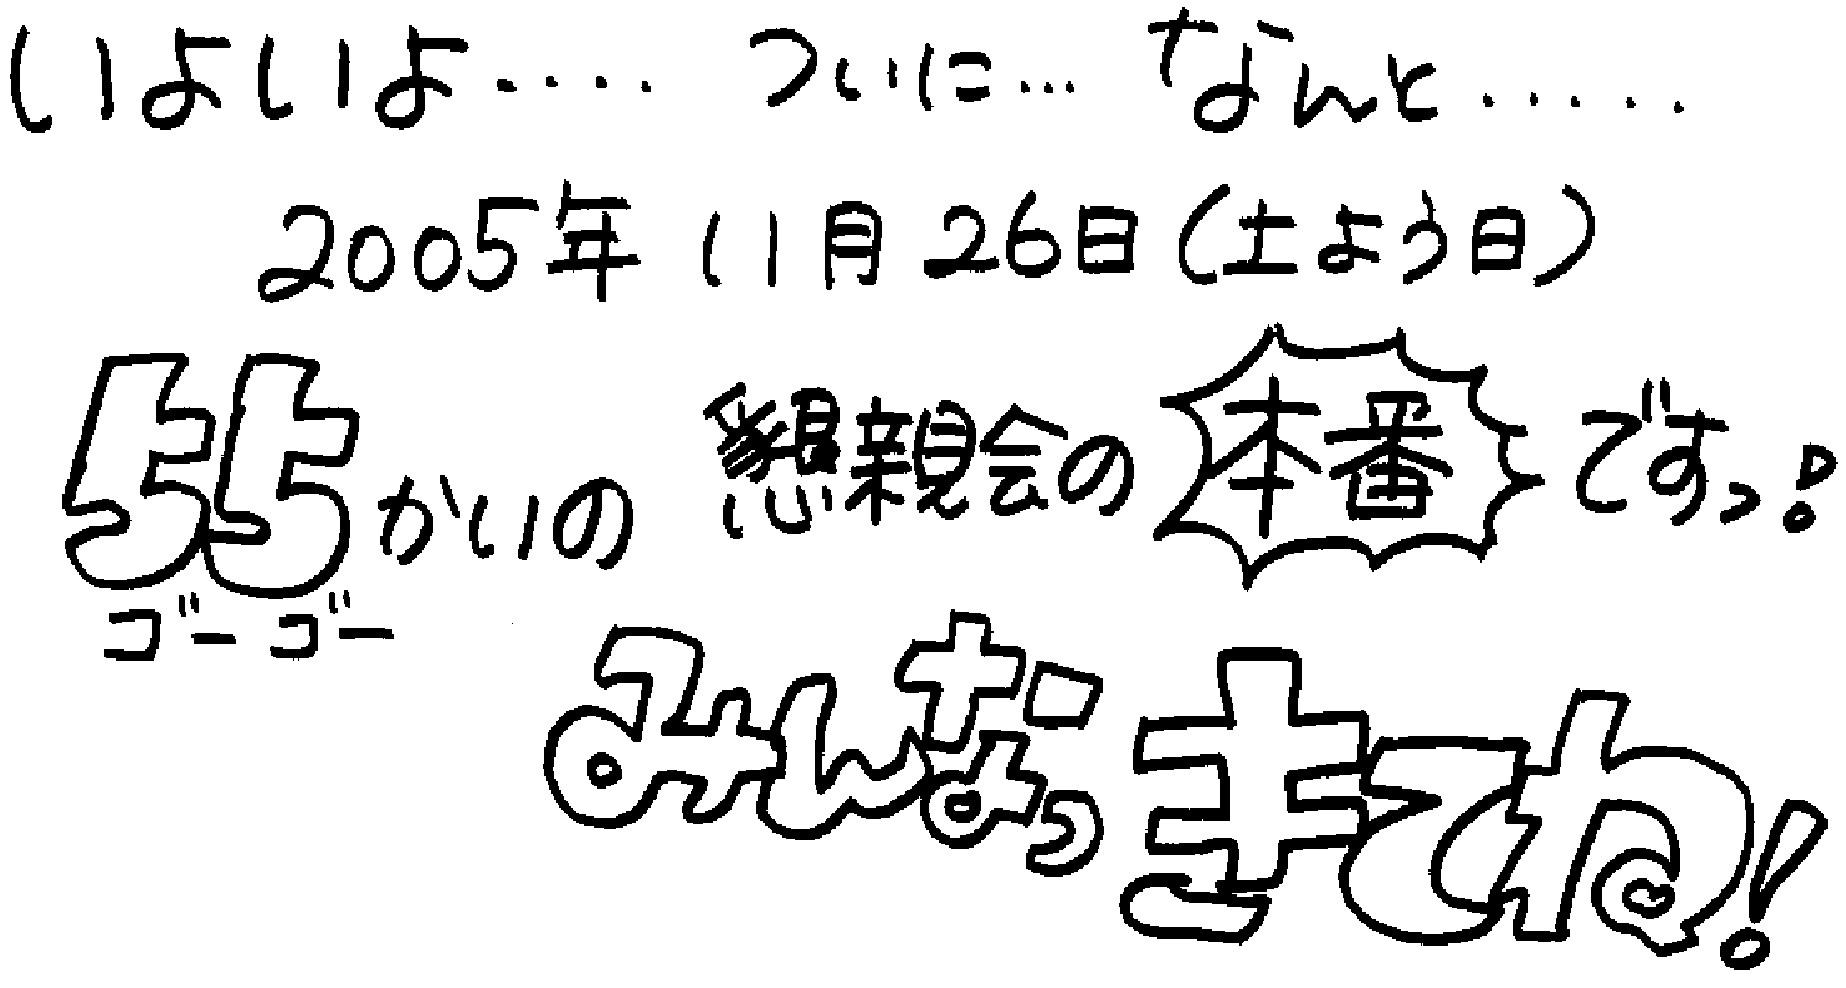 いよいよ‥‥ ついに… なんと‥‥‥
2005年 11月 26日(土よう日)
55かいの 懇親会の 本番 ですっ!
ゴーゴー
みんなっ きてね!